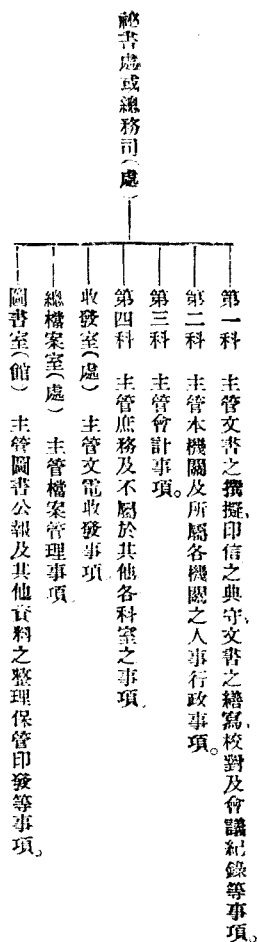 祕書處或總務司（處）
第一科　主管文書之撰擬、印信之典守、文書之繕寫、校對及會議紀錄等事項。
第二科　主管本機關及所屬各機關之人事行政事項。
第三科　主管會計事項。
第四科　主管庶務及不屬於其他各科室之事項。
收發室（處）　主管文電收發事項。
總檔案室（處）　主管檔案管理事項。
圖書室（館）　主管圖書公報及其他資料之整理保管印發等事項。